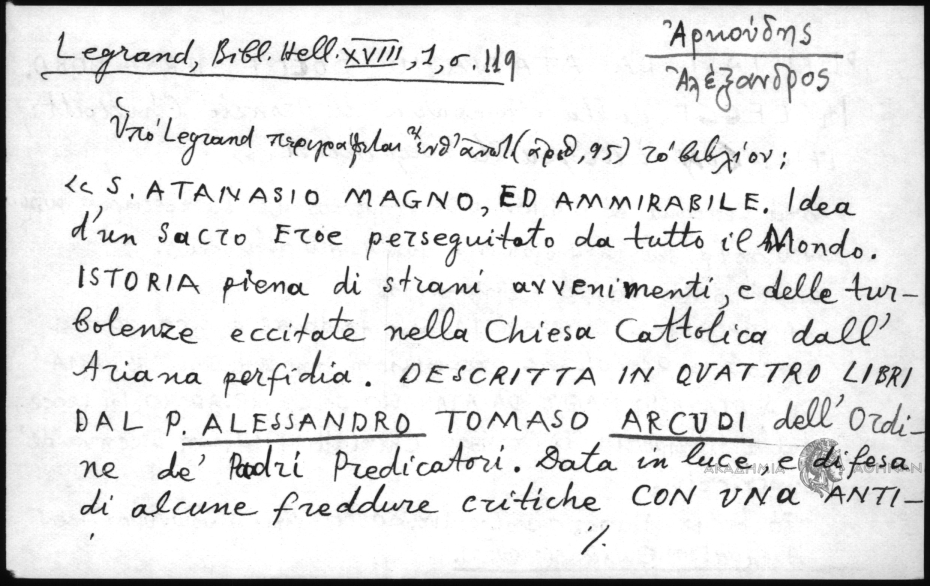 Legrand, Bibl. Hell. XVIII, 1, σ. 119
Ἀρκούδης
Ἀλέξανδρος
Ὑπό Legrand περιγράφεται ἀνωτ (ἀριθ, 95) τό βιβλίον;
<< S. ATANASIO MAGNO, ED AMMIRABILE. Idea
d'un Sacro Eroe perseguitato da tutto il Mondo.
ISTORIA piena di strani avvenimenti, e delle tur-
bolenze eccitate nella Chiesa Cattolica dall'
Ariana perfidia. DESCRITTA IN QUATTRO LIBRI
DAL P. ALESSANDRO TOMASO ARCUDI dell' Ordi-
ne de' Padri Predicatori. Data in luce, e difesa
ΑΚΑΔΗΜΙΑ ΑΘΗΝΩΝ
di alcune freddure critiche CON UNA ANTI-
./.